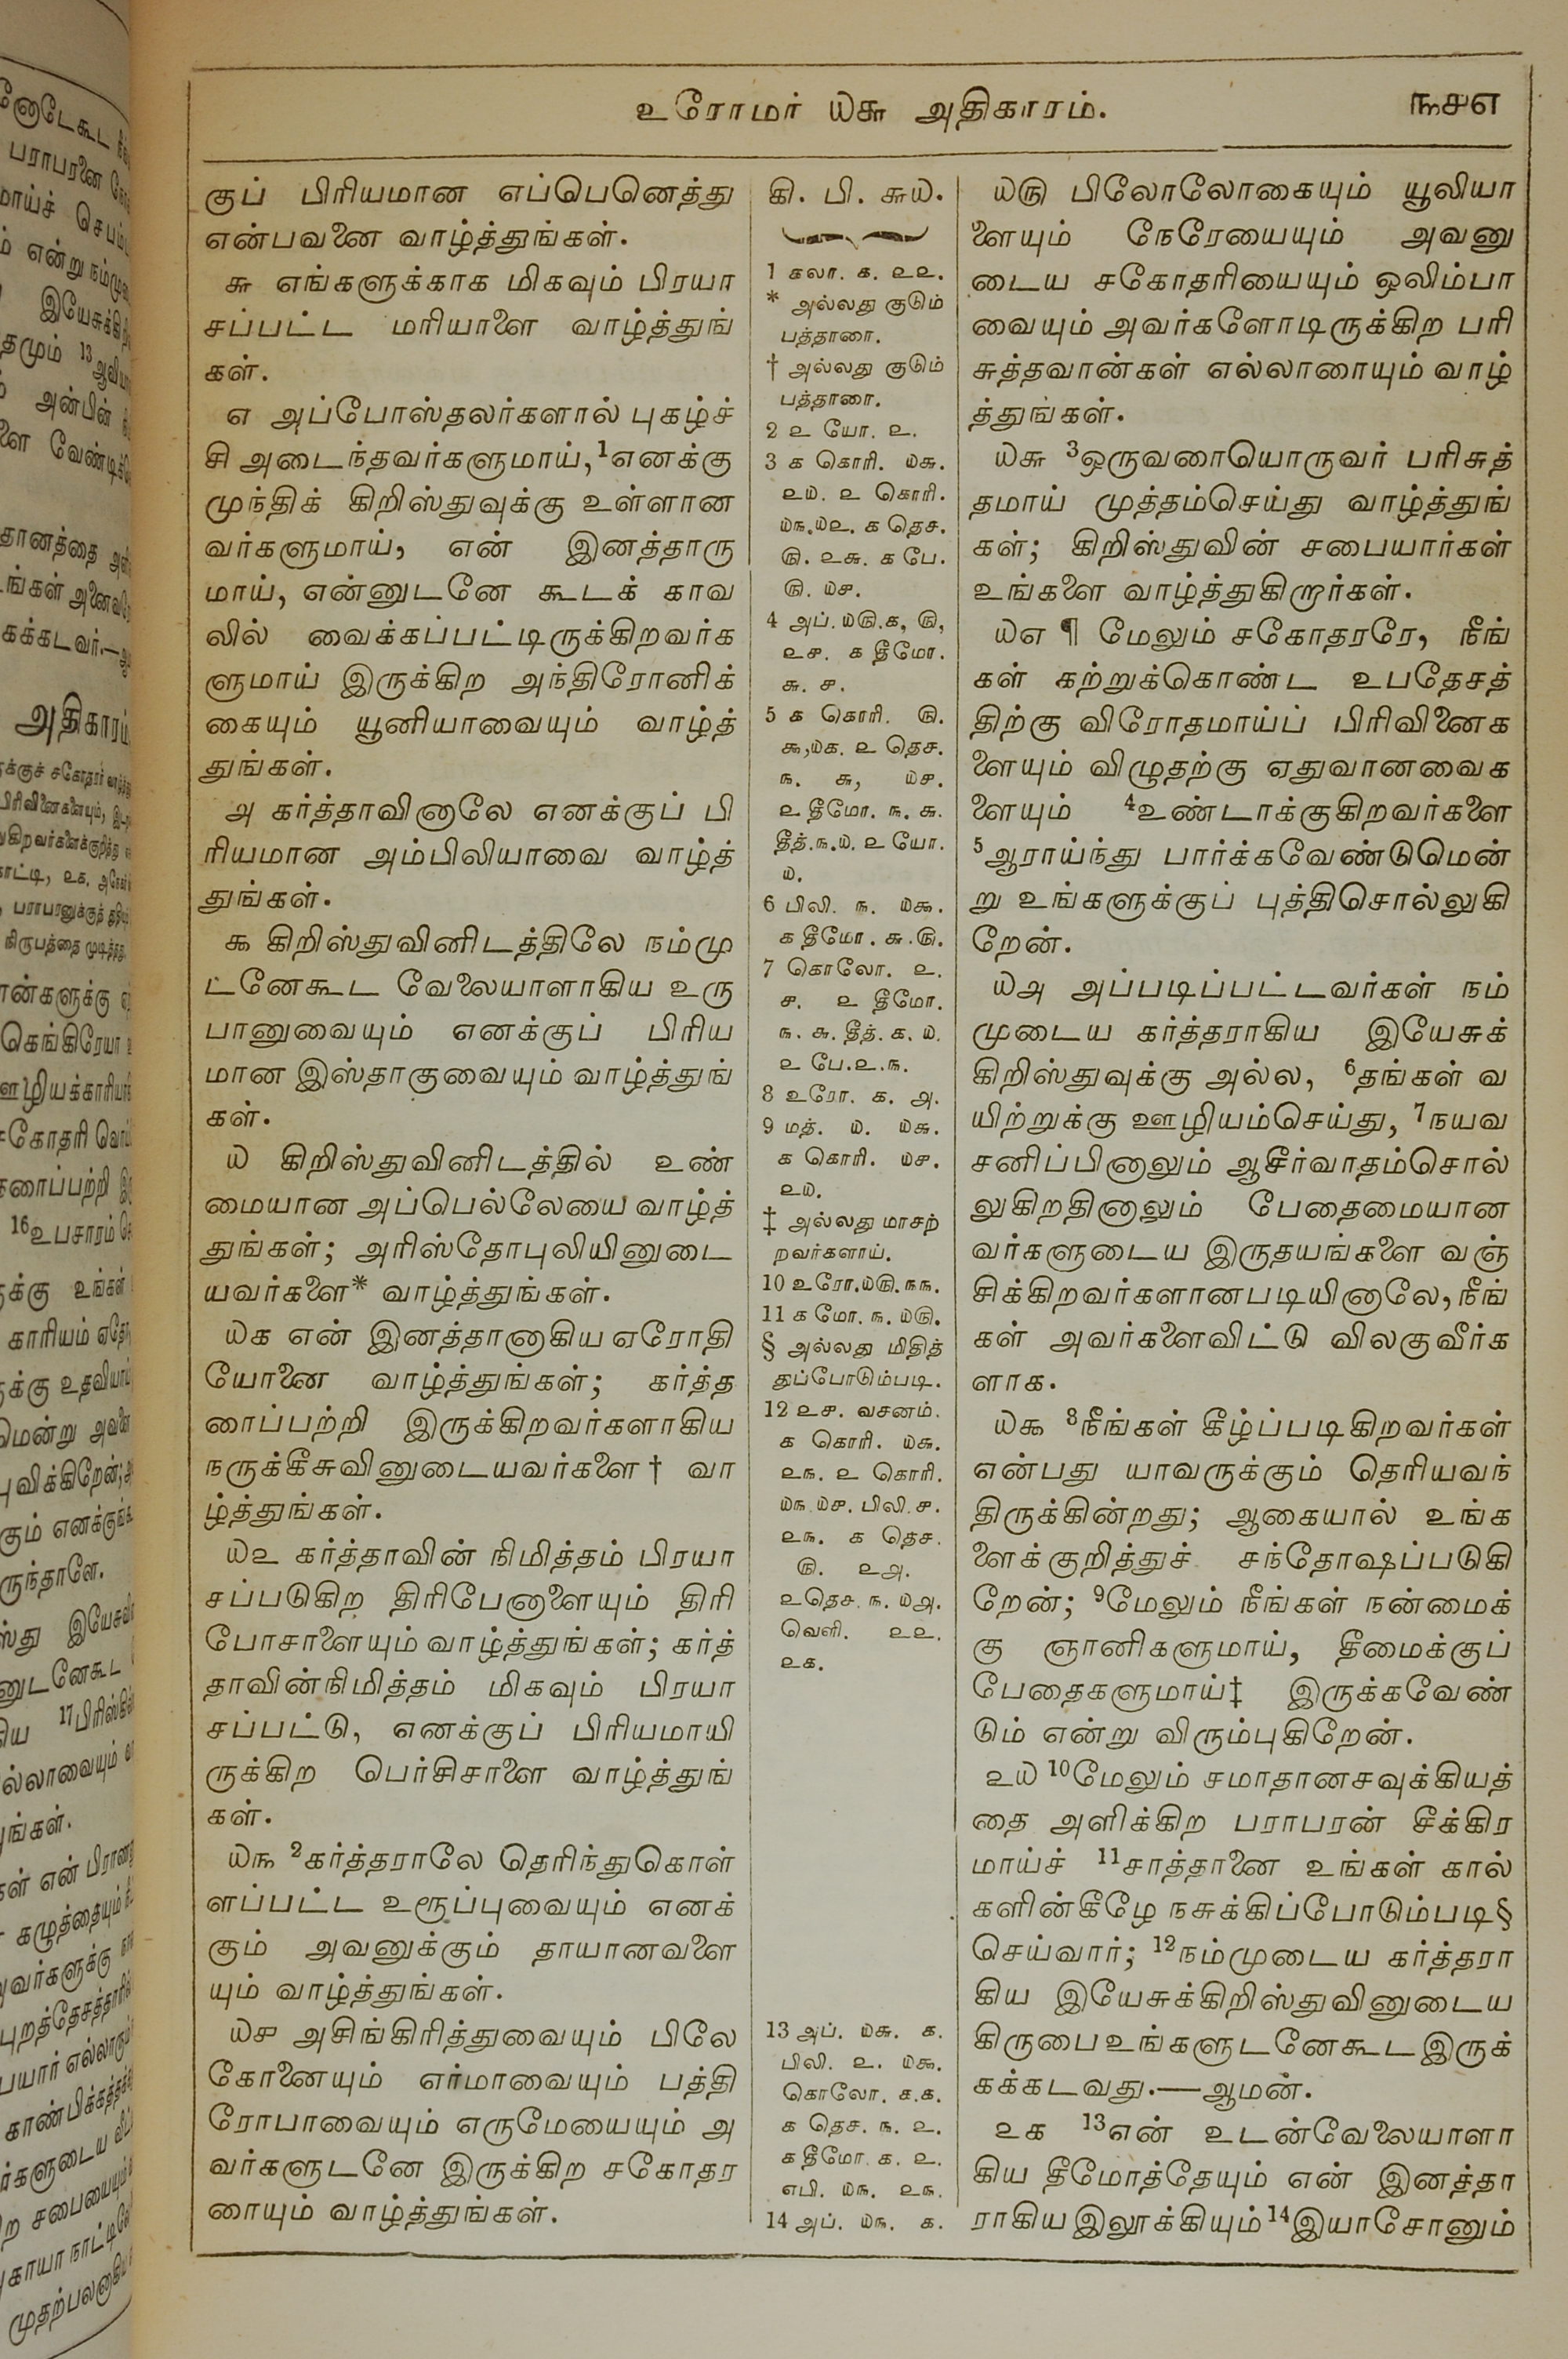 உரோமர் ௰௬ அதிகாரம்.
௩௪௭
குப் பிரியமான எப்பெனெத்து
என்பவனை வாழ்த்துங்கள்.
௬ எங்களுக்காக மிகவும் பிரயா
சப்பட்ட மரியாளை வாழ்த்துங்
கள்.
௭ அப்போஸ்தலர்களால் புகழ்ச்
சி அடைந்தவர்களுமாய், 1எனக்கு
முந்திக் கிறிஸ்துவுக்கு உள்ளான
வர்களுமாய், என் இனத்தாரு
மாய், என்னுடனே கூடக் காவ
லில் வைக்கப்பட்டிருக்கிறவர்க
ளுமாய் இருக்கிற அந்திரோனிக்
கையும் யூனியாவையும் வாழ்த்
துங்கள்.
௮ கர்த்தாவினாலே எனக்குப் பி
ரியமான அம்பிலியாவை வாழ்த்
துங்கள்.
௯ கிறிஸ்துவினிடத்திலே நம்மு
ட்னேகூட வேலையாளாகிய உரு
பானுவையும் எனக்குப் பிரிய
மான இஸ்தாகுவையும் வாழ்த்துங்
கள்.
௰ கிறிஸ்துவினிடத்தில் உண்
மையான அப்பெல்லேயை வாழ்த்
துங்கள்; அரிஸ்தோபுலியினுடை
யவர்களை* வாழ்த்துங்கள்.
௰௧ என் இனத்தானாகிய ஏரோதி
யோனை வாழ்த்துங்கள்; கர்த்த
ரைப்பற்றி இருக்கிறவர்களாகிய
நருக்கீசுவினுடையவர்களை† வா
ழ்த்துங்கள்.
௰௨ கர்த்தாவின் நிமித்தம் பிரயா
சப்படுகிற திரிபேனாளையும் திரி
போசாளையும் வாழ்த்துங்கள்; கர்த்
தாவின்நிமித்தம் மிகவும் பிரயா
சப்பட்டு, எனக்குப் பிரியமாயி
ருக்கிற பெர்சிசாளை வாழ்த்துங்
கள்.
௰௩ 2கர்த்தராலே தெரிந்துகொள்
ளப்பட்ட உரூப்புவையும் எனக்
கும் அவனுக்கும் தாயானவளை
யும் வாழ்த்துங்கள்.
௰௪ அசிங்கிரித்துவையும் பிலே
கோனையும் எர்மாவையும் பத்தி
ரோபாவையும் எருமேயையும் அ
வர்களுடனே இருக்கிற சகோதர
ரையும் வாழ்த்துங்கள்.
கி. பி. ௬௰.
1 கலா. ௧. ௨௨.
* அல்லது குடும்
பத்தாரை.
† அல்லது குடும்
பத்தாரை.
2 ௨ யோ. ௨.
3 ௧ கொரி. ௰௬.
௨௰. ௨ கொரி.
௰௩.௰௨. ௧ தெச.
௫. ௨௬. ௧ பே.
௫. ௰௪.
4 அப். ௰௫.௧, ௫,
௨௪. ௧ தீமோ.
௬. ௪.
5 ௧ கொரி. ௫.
௯,௰௧. ௨ தெச.
௩. ௬, ௰௪.
௨ தீமோ. ௩. ௬.
தீத்.௩.௰. ௨ யோ.
௰.
6 பிலி. ௩. ௰௯.
௧ தீமோ. ௬.௫.
7 கொலோ. ௨.
௪. ௨ தீமோ.
௩. ௬. தீத். ௧. ௰.
௨ பே.௨.௩.
8 உரோ. ௧. ௮.
9 மத். ௰. ௰௬.
௧ கொரி. ௰௪.
௨௰.
‡ அல்லது மாசற்
றவர்களாய்.
10 உரோ.௰௫.௩௩.
11 ௧ மோ. ௩. ௰௫.
§ அல்லது மிதித்
துப்போடும்படி.
12 ௨௪. வசனம்.
௧ கொரி. ௰௬.
௨௩. ௨ கொரி.
௰௩.௰௪. பிலி.௪.
௨௩. ௧ தெச.
௫. ௨௮.
௨தெச. ௩. ௰௮.
வெளி. ௨௨.
௨௧.
13 அப். ௰௬. ௧.
பிலி. ௨. ௰௯.
கொலோ. ௧.௧.
௧ தெச. ௩. ௨.
௧ தீமோ. ௧. ௨.
எபி. ௰௩. ௨௩.
14 அப். ௰௩. ௧.
௰௫ பிலோலோகையும் யூலியா
ளையும் நேரேயையும் அவனு
டைய சகோதரியையும் ஒலிம்பா
வையும் அவர்களோடிருக்கிற பரி
சுத்தவான்கள் எல்லாரையும் வாழ்
த்துங்கள்.
௰௬ 3ஒருவரையொருவர் பரிசுத்
தமாய் முத்தம்செய்து வாழ்த்துங்
கள்; கிறிஸ்துவின் சபையார்கள்
உங்களை வாழ்த்துகிறார்கள்.
௰௭ ¶ மேலும் சகோதரரே, நீங்
கள் கற்றுக்கொண்ட உபதேசத்
திற்கு விரோதமாய்ப் பிரிவினைக
ளையும் விழுதற்கு ஏதுவானவைக
ளையும் 4உண்டாக்குகிறவர்களை
5ஆராய்ந்து பார்க்கவேண்டுமென்
று உங்களுக்குப் புத்திசொல்லுகி
றேன்.
௰௮ அப்படிப்பட்டவர்கள் நம்
முடைய கர்த்தராகிய இயேசுக்
கிறிஸ்துவுக்கு அல்ல, 6தங்கள் வ
யிற்றுக்கு ஊழியம்செய்து, 7நயவ
சனிப்பினாலும் ஆசீர்வாதம்சொல்
லுகிறதினாலும் பேதைமையான
வர்களுடைய இருதயங்களை வஞ்
சிக்கிறவர்களானபடியினாலே, நீங்
கள் அவர்களைவிட்டு விலகுவீர்க
ளாக.
௰௯ 8நீங்கள் கீழ்ப்படிகிறவர்கள்
என்பது யாவருக்கும் தெரியவந்
திருக்கின்றது; ஆகையால் உங்க
ளைக்குறித்துச் சந்தோஷப்படுகி
றேன்; 9மேலும் நீங்கள் நன்மைக்
கு ஞானிகளுமாய், தீமைக்குப்
பேதைகளுமாய்‡ இருக்கவேண்
டும் என்று விரும்புகிறேன்.
௨௰ 10மேலும் சமாதானசவுக்கியத்
தை அளிக்கிற பராபரன் சீக்கிர
மாய்ச் 11சாத்தானை உங்கள் கால்
களின்கீழே நசுக்கிப்போடும்படி§
செய்வார்; 12நம்முடைய கர்த்தரா
கிய இயேசுக்கிறிஸ்துவினுடைய
கிருபை உங்களுடனேகூட இருக்
கக்கடவது.—ஆமன்.
௨௧ 13என் உடன்வேலையாளா
கிய தீமோத்தேயும் என் இனத்தா
ராகிய இலூக்கியும் 14இயாசோனும்